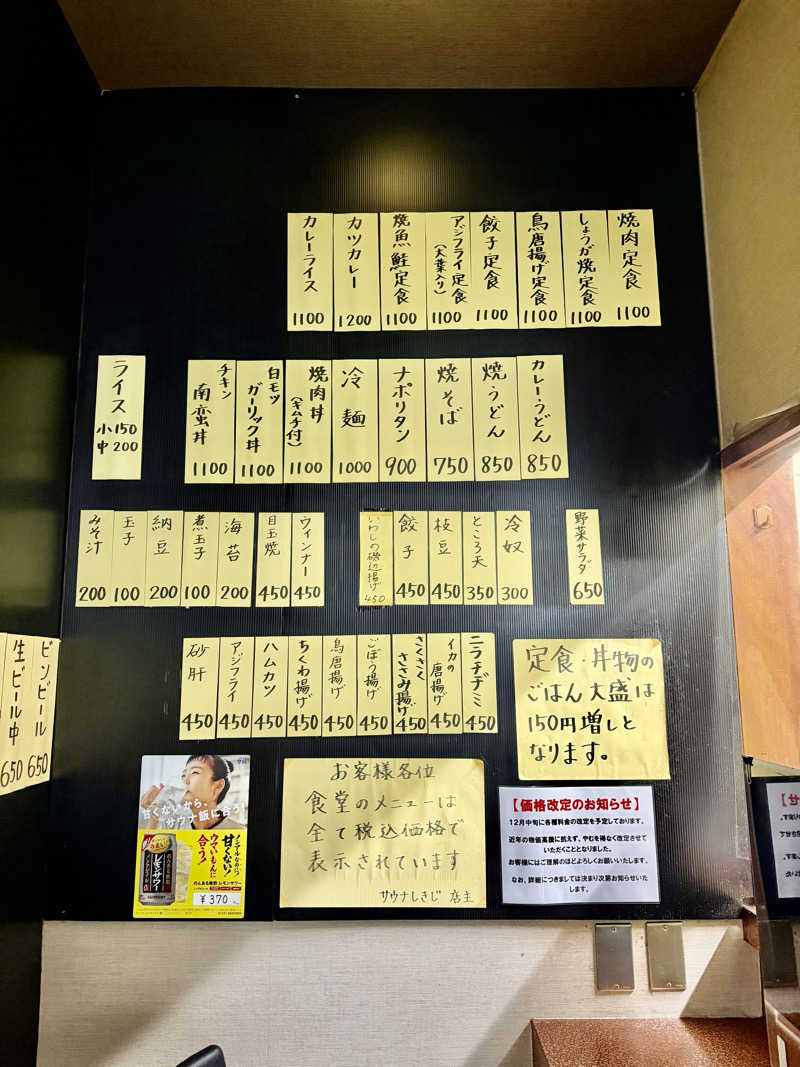 焼肉定食 1100
しょうが焼定食 1100
鳥唐揚げ定食 1100
餃子定食 1100
アジフライ定食(大葉入り) 1100
焼魚鮭定食 1100
カツカレー 1200
カレーライス 1100
カレーうどん 850
焼うどん 850
焼そば 750
ナポリタン 900
冷麺 1000
焼肉丼(キムチ付) 1100
白モツガーリック丼 1100
チキン南蛮丼 1100
ライス
小 150
中 200
野菜サラダ 650
冷奴 300
ところ天 350
枝豆 450
餃子 450
いわしの磯辺揚げ 450
ウィンナー 450
目玉焼 450
海苔 200
煮玉子 100
納豆 200
玉子 100
みそ汁 200
ニラチヂミ 450
イカの唐揚げ 450
さくさくささみ揚げ 450
ごぼう揚げ 450
鳥唐揚げ 450
ちくわ揚げ 450
ハムカツ 450
アジフライ 450
砂肝 450
ビンビール 650
生ビール中 650
定食・丼物の
ごはん大盛は
150円増しと
なります。
お客様各位
食堂のメニューは
全て税込価格で
表示されています
サウナしきじ 店主
【価格改定のお知らせ】
12月中旬に各種料金の改定を予定しております。
近年の物価高騰に抗えず、やむを得なく改定させて
いただくこととなりました。
お客様にはご理解のほどよろしくお願いいたします。
なお、詳細につきましては決まり次第お知らせいた
します。
甘くないから、
サウナ飯に合う。
ノンアルなのに!
甘くない!
ウマいもんに
合う!
レモンサワー
のんある晩酌 レモンサワー
¥370